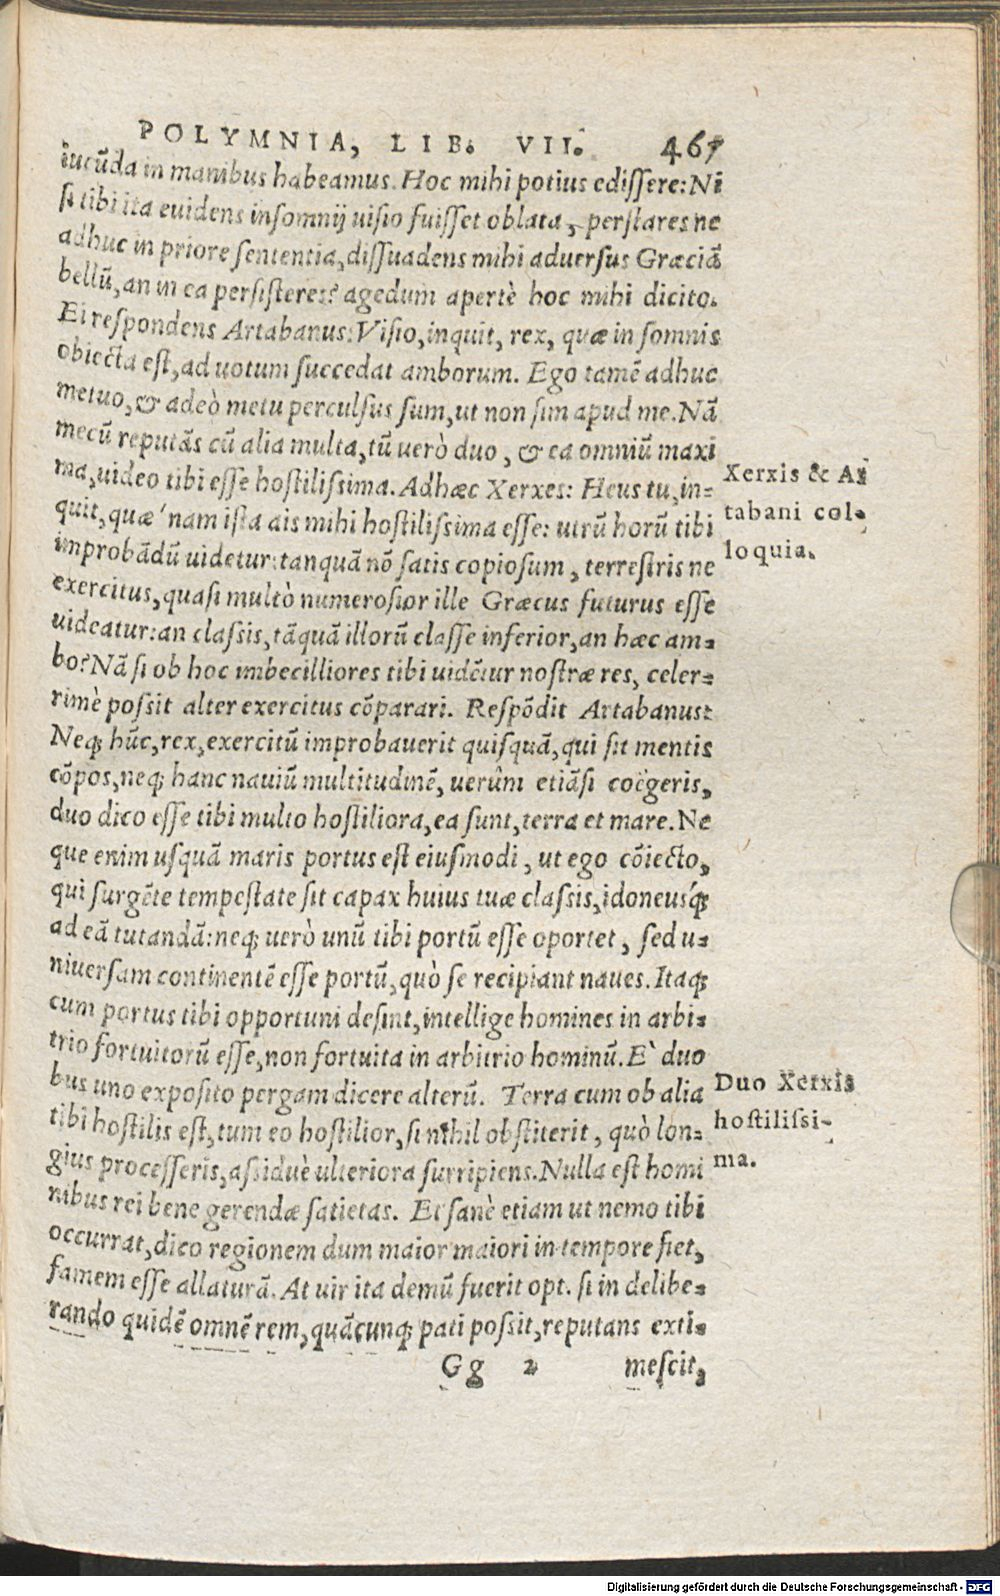 POLYMNIA, LIB. VII. 467
iucũda in manibus habeamus. Hoc mihi potius edissere: Ni
si tibi ita euidens insomnij uisio fuisset oblata, perstares ne
adhuc in priore sententia, dissuadens mihi aduersus Græciã
bellũ, an in ea persisteres? agedum apertè hoc mihi dicito.
Ei respondens Artabanus: Visio, inquit, rex, quæ in somnis
obiecta est, ad uotum succedat amborum. Ego tamẽ adhuc
metuo, & adeò metu perculsus sum, ut non sim apud me. Nã
mecũ reputãs cũ alia multa, tũ uerò duo, & ea omniũ maxi
ma, uideo tibi esse hostilissima. Adhæc Xerxes: Heus tu, in-
quit, quæ'nam ista ais mihi hostilissima esse: utrũ horũ tibi
improbãdũ uidetur: tanquã nõ satis copiosum, terrestris ne
exercitus, quasi multò numerosior ille Græcus futurus esse
uideatur: an classis, tãquã illorũ classe inferior, an hæc am-
bo? Nã si ob hoc imbecilliores tibi uidẽtur nostræ res, celer-
rimè possit alter exercitus cõparari. Respõdit Artabanus:
Neq; hũc, rex, exercitũ improbauerit quisquã, qui sit mentis
cõpos, neq; hanc nauiũ multitudinẽ, uerùm etiãsi coëgeris,
duo dico esse tibi multo hostiliora, ea sunt, terra et mare. Ne
que enim usquã maris portus est eiusmodi, ut ego cõiecto,
qui surgẽte tempestate sit capax huius tuæ classis, idoneusq́;
ad eã tutandã: neq; uerò unũ tibi portũ esse oportet, sed u-
niuersam continentẽ esse portũ, quò se recipiant naues. Itaq;
cum portus tibi opportuni desint, intellige homines in arbi-
trio fortuitorũ esse, non fortuita in arbitrio hominũ. E` duo
bus uno exposito pergam dicere alterũ. Terra cum ob alia
tibi hostilis est, tum eo hostilior, si nihil obstiterit, quò lon-
gius processeris, assiduè ulteriora surripiens. Nulla est homi
nibus rei bene gerendæ satietas. Et sanè etiam ut nemo tibi
occurrat, dico regionem dum maior maiori in tempore fiet,
famem esse allaturã. At uir ita demũ fuerit opt. si in delibe-
rando quidẽ omnẽ rem, quãcunq; pati possit, reputans exti-
Gg 2 mescit,
Xerxis & Ar
tabani col-
loquia.
Duo Xerxis
hostilissi-
ma.
Digitalisierung gefördert durch die Deutsche Forschungsgemeinschaft - DFG